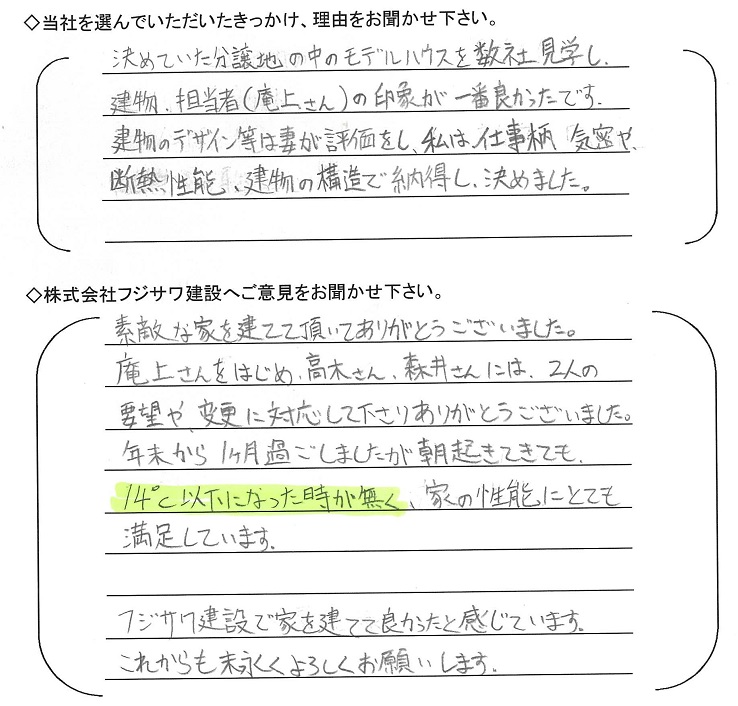 ◇当社を選んでいただいたきっかけ、理由をお聞かせ下さい。
決めていた分譲地の中のモデルハウスを数社見学し、
建物、担当者(庵上さん)の印象が一番良かったです。
建物のデザイン等は妻が評価をし、私は仕事柄 気密や、
断熱性能、建物の構造で納得し、決めました。
◇株式会社フジサワ建設へご意見をお聞かせ下さい。
素敵な家を建てて頂いてありがとうございました。
庵上さんをはじめ、高木さん、森井さんには、2人の
要望や、変更に対応して下さりありがとうございました。
年末から1ヶ月過ごしましたが朝起きてきても、
14℃以下になった時が無く、家の性能にとても
満足しています。
フジサワ建設で家を建てて良かったと感じています。
これからも末永くよろしくお願いします。